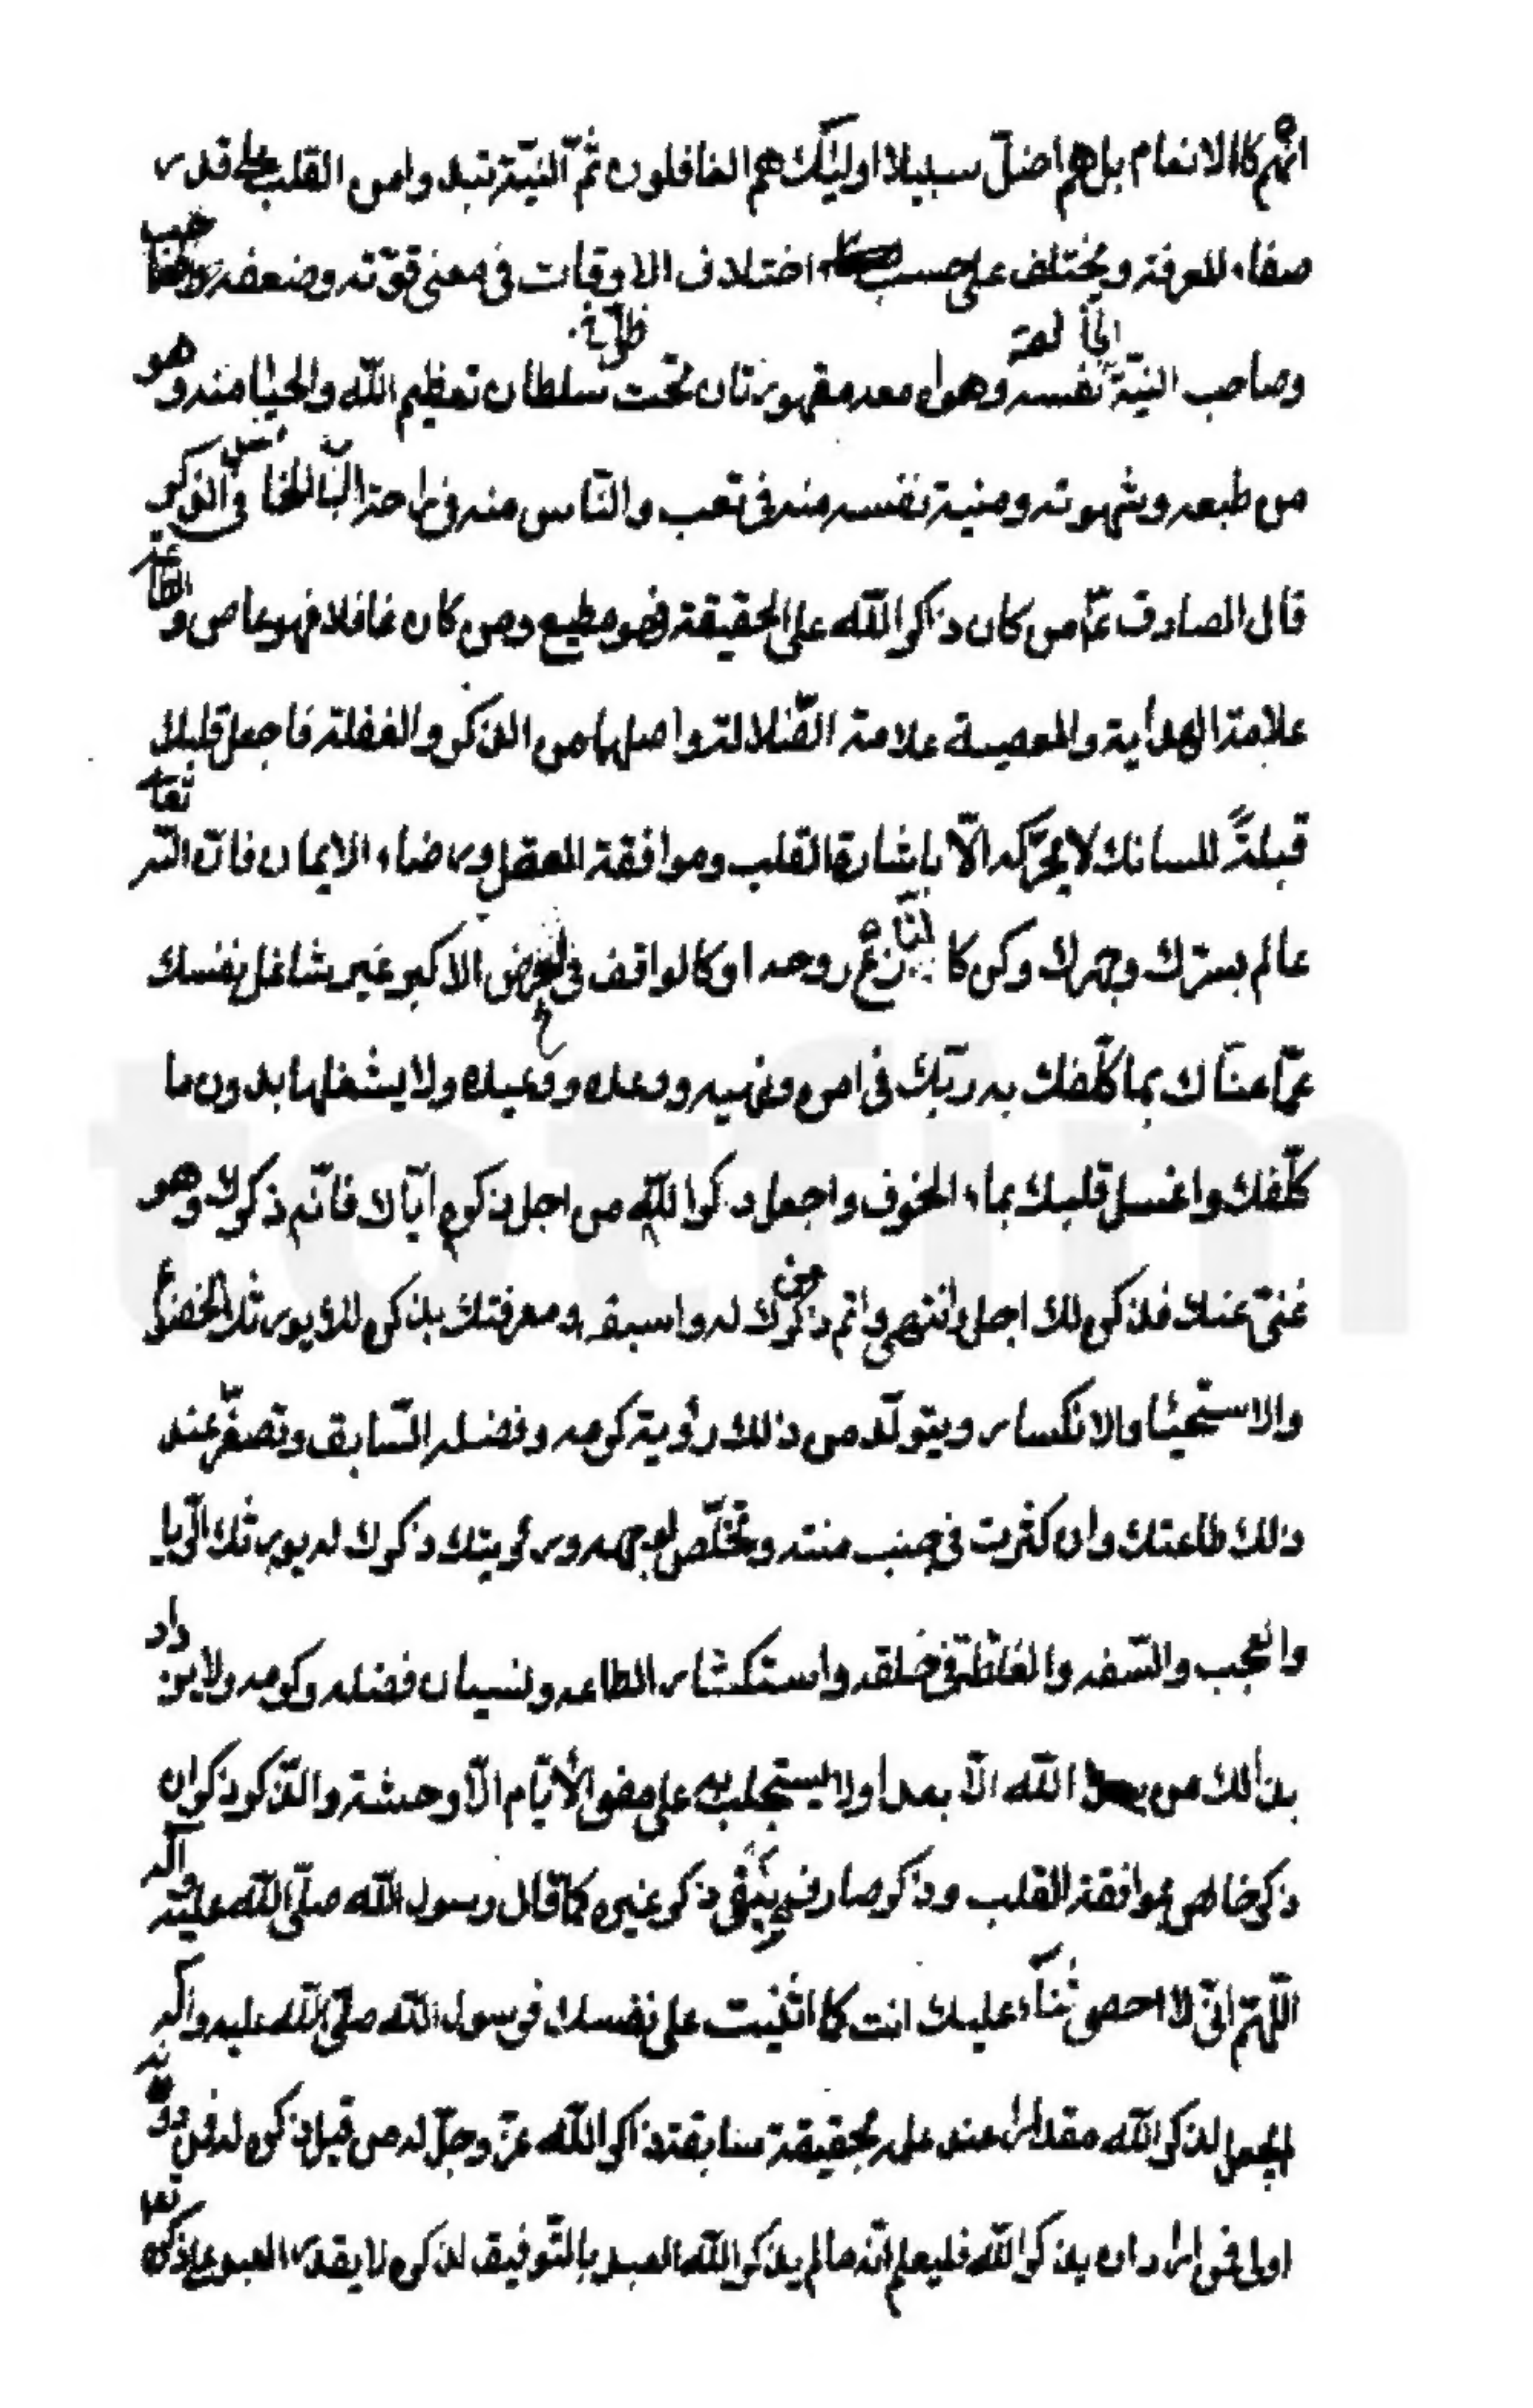 انّهم كالانعام بل هم اضلّ سبيلا اوليّك هم الغافلون ثمّ النيّة تبدوا من القلب على قدر
صفاء المعرفة ويختلف على حسب اختلاف الاوقات فى معنى قوّته وضعفه
وصاحب النيّة الخالصة نفسه وهواه معه مقهورتان تحت سلطان تعظيم الله والحيا منه وهو
من طبعه وشهوته ومنية نفسه منه فى تعب والنّاس منه فى راحة الباب الخامس فى الذكر
قال الصادق عم من كان ذاكر الله على الحقيقة فهو مطيع ومن كان غافلا فهو عاص والطاعة
علامة الهداية والمعصية علامة الضّلالة واصلهما من الذكر والغفلة فاجعل قلبك
قبلةً للسانك لا يحرّكه الّا باشارة القلب وموافقة العقل ورضاء الايمان فانّ الله تعا
عالم بسرّك وجهرك وكن كالنازع روحه او كالواقف فى العرض الاكبر غير شاغل نفسك
عمّا عناك بما كلّفك به ربّك فى امره ونهيه ووعده ووعيده ولا يشغلها بدون ما
كلّفك واغسل قلبك بماء الخوف واجعل ذكر الله من اجل ذكره ايّاك فانّه ذكرك وهو
غنىّ عنك فذكره لك اجل وانتهى واتم من ذكرك له واسبق ومعرفتك بذكره لك يورثك الخضوع
والاستحيا والانكسار ويتولّد من ذلك رؤية كرمه وفضله السّابق وتصغّر عند
ذلك طاعتك وان كثرت فى جنب منته وتخلّص لوجهه ورؤيتك ذكرك له يورثك الرّيا
والعجب والسّفه والغلظة فى خلقه واستكثار الطاعه ونسيان فضله وكرمه ولا يزداد
بذلك من الله الّا بعدا ولا يستجلب به على مضى الأيّام الّا وحشة والذّكر ذكران
ذكر خالص بموافقة القلب وذكر صارف ينفى ذكر غيره كما قال رسول الله صلّى الله عليه وآله
اللّهمّ انّى لا احصى ثناء عليك انت كما اثنيت على نفسك فرسول الله صلّى الله عليه وآله
لم يجعل لذكر الله مقدارا عند علمه بحقيقة سابقة ذكر الله عزّ وجلّ له من قبل ذكره له فمن دونه
اولى فمن اراد ان يذكر الله فليعلم انّه ما لم يذكر الله العبد بالتّوفيق لذكره لا يقدر العبد على ذكره